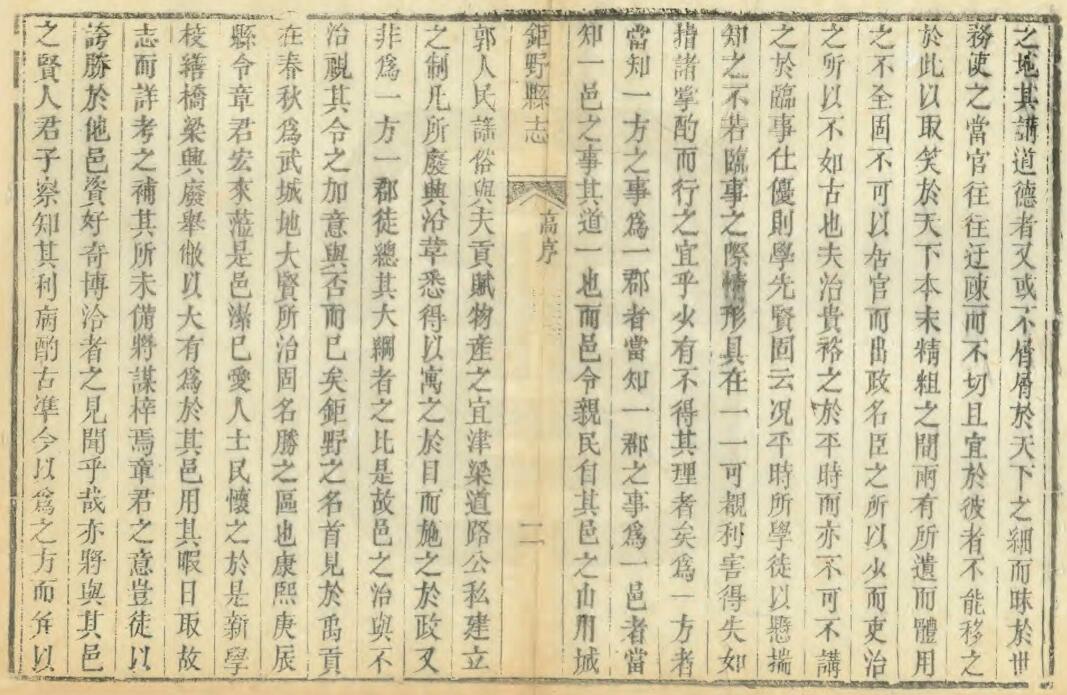 之地其講道德者又或不屑屑於天下之細而昧於世
務使之當官往往迂疎而不切且宜於彼者不能移之
於此以取笑於天下本末精粗之間兩有所遺而體用
之不全固不可以居官而出政名臣之所以少而吏治
之所以不如古也夫治貴裕之於平時而亦不可不講
之於臨事仕優則學先賢固云况平時所學徒以懸揣
知之不若臨事之際情形具在一一可覩利害得失如
指諸掌酌而行之宜乎少有不得其理者矣為一方者
當知一方之事為一郡者當知一郡之事為一邑者當
知一邑之事其道一也而邑令親民自其邑之山川城
鉅野縣志
高序
二
郭人民謡俗與夫貢賦物産之宜津梁道路公私建立
之制凡所廢興沿革悉得以寓之於目而施之於政又
非為一方一郡徒總其大綱者之比是故邑之治與不
治視其令之加意與否而已矣鉅野之名首見於禹貢
在春秋為武城地大賢所治固名勝之區也康熙庚辰
縣令章君宏來蒞是邑潔已愛人士民懷之於是新學
校繕橋梁興廢舉墜以大有為於其邑用其暇日取故
志而詳考之補其所未備將謀梓焉章君之意豈徒以
誇勝於他邑資好奇博洽者之見聞乎哉亦將與其邑
之賢人君子察知其利病酌古準今以為之方而㡳以